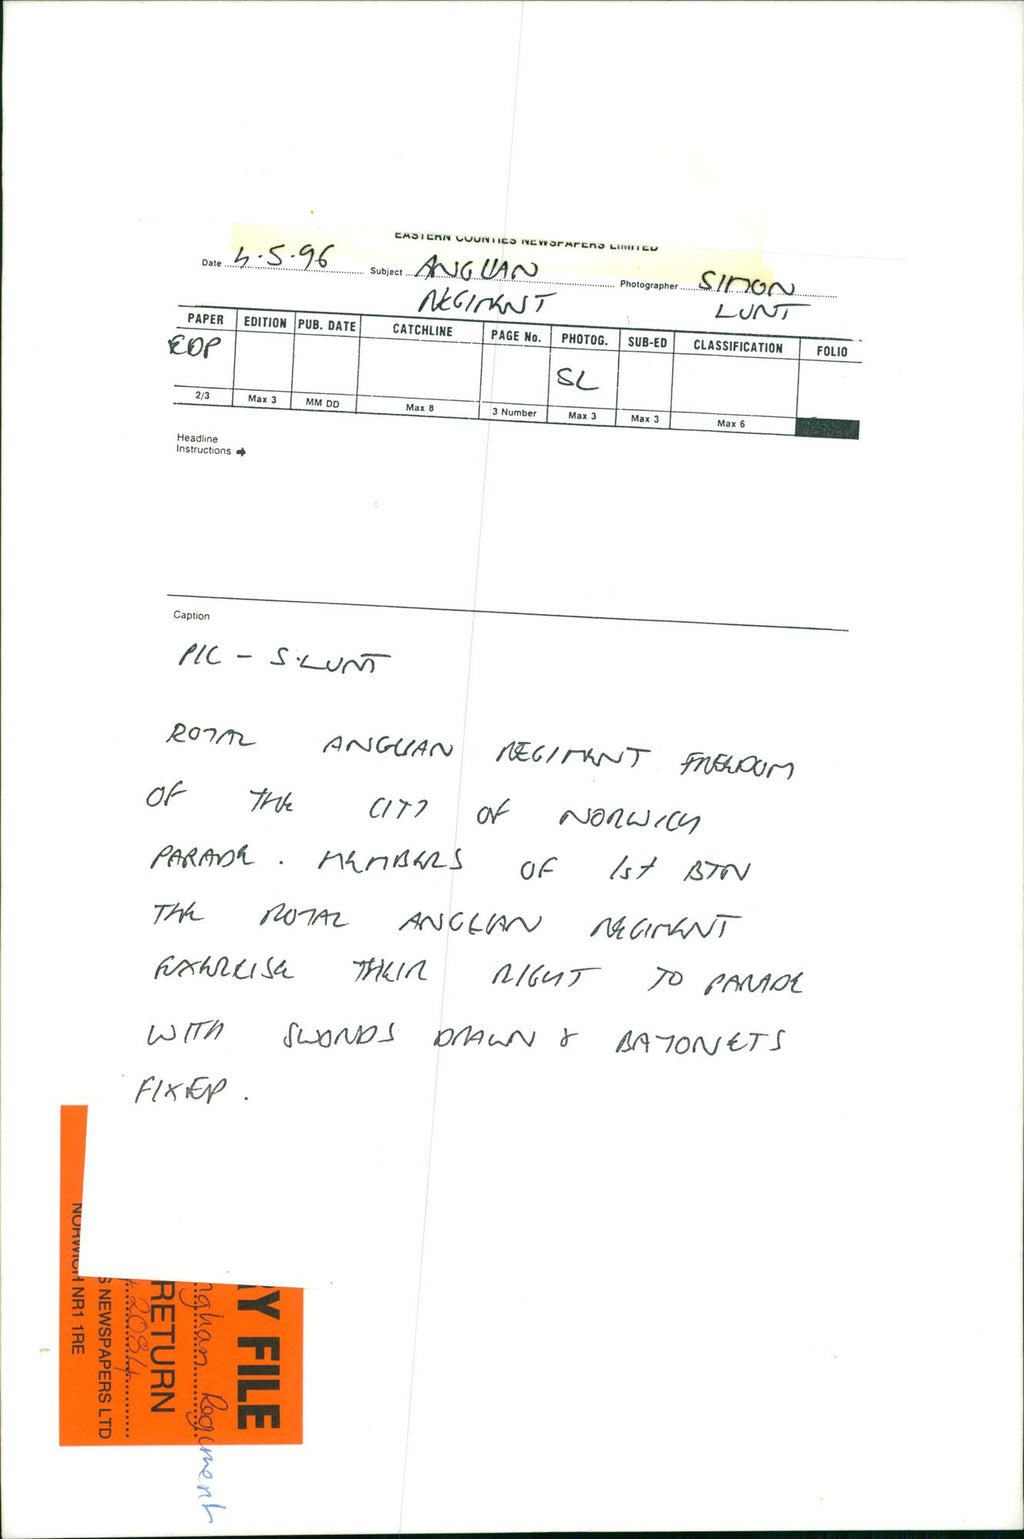 EASTERN COUNTIES NEWSPAPERS LIMITED
Date 4.5.96 Subject ANGLIAN Photographer SIMON
REGIMENT LUNT
PAPER EDITION PUB. DATE CATCHLINE PAGE No. PHOTOG. SUB-ED CLASSIFICATION FOLIO
EDP SL
2/3 Max 3 MM DD Max 8 3 Number Max 3 Max 3 Max 6
Headline
Instructions ➔
Caption
PIC - S.LUNT
ROYAL ANGLIAN REGIMENT FREEDOM
OF THE CITY OF NORWICH
PARADE. MEMBERS OF 1st BTN
THE ROYAL ANGLIAN REGIMENT
EXERCISE THEIR RIGHT TO PARADE
WITH SWORDS DRAWN & BAYONETS
FIXED.
RY FILE
nglian Regiment
RETURN
2084
S NEWSPAPERS LTD
NORWICH NR1 1RE